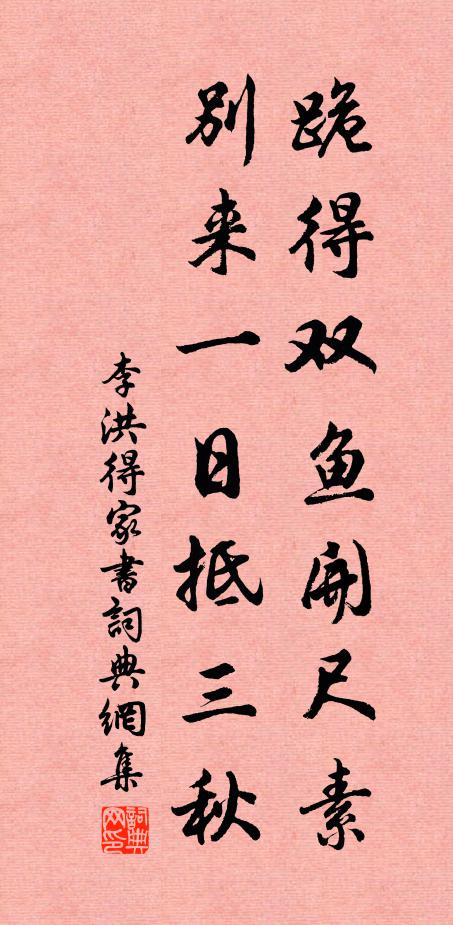 跪得双鱼开尺素
别来一日抵三秋
李洪得家書詞典網集
詞典网印